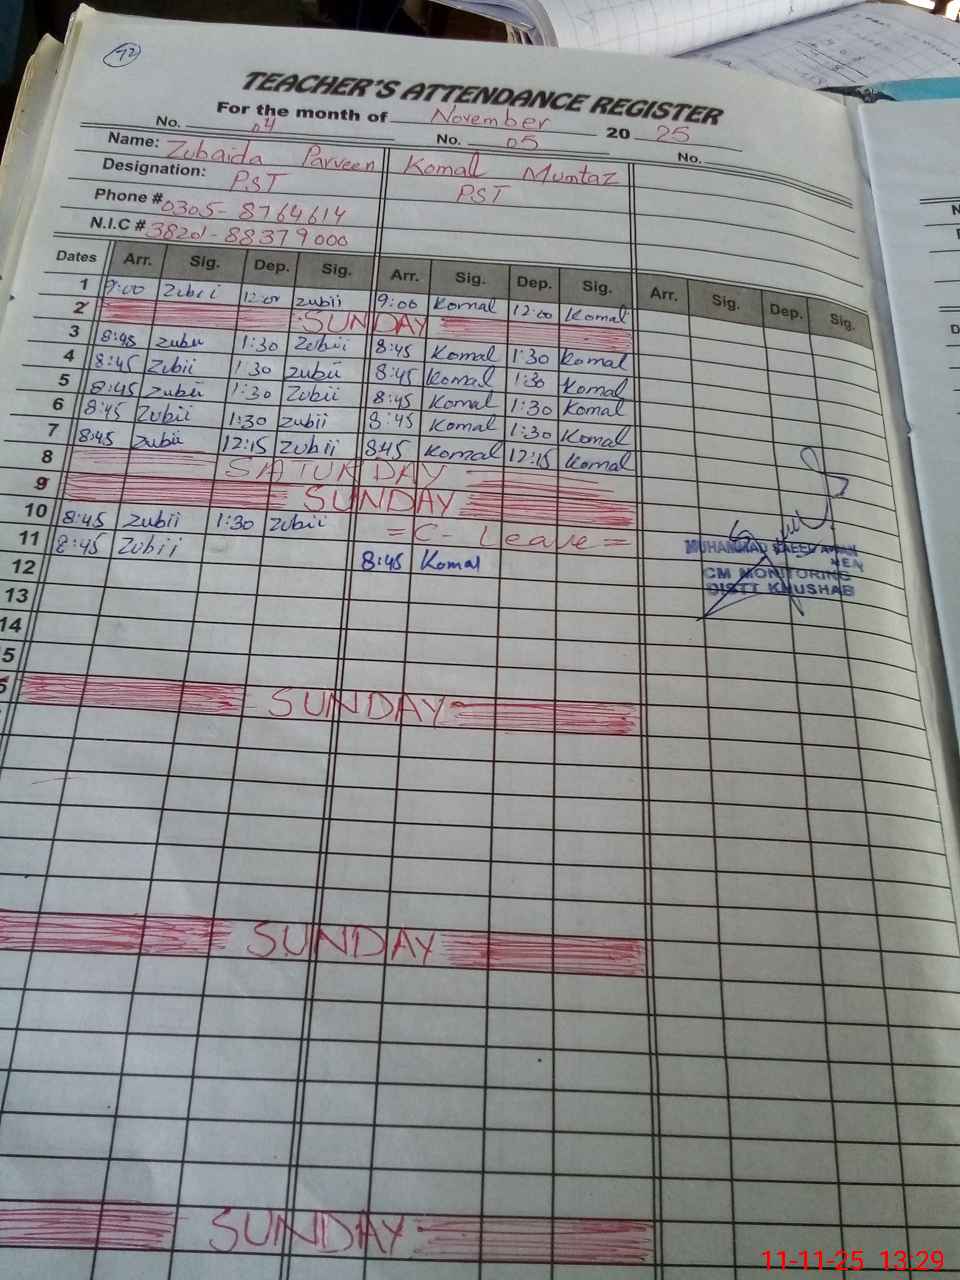 72
TEACHER'S ATTENDANCE REGISTER
For the month of November 20 25
No. 04 No. 05 No.
Name: Zubaida Parveen Komal Mumtaz
Designation: PST PST
Phone # 0305-8764614
N.I.C #
Dates Arr. Sig. Dep. Sig. Arr. Sig. Dep. Sig. Arr. Sig. Dep. Sig.
1 9:00 Zubii 12:00 zubii 9:00 Komal 12:00 Komal
2 SUNDAY
3 8:45 zubii 1:30 Zubii 8:45 Komal 1:30 Komal
4 8:45 Zubii 1:30 zubii 8:45 Komal 1:30 Komal
5 8:45 zubii 1:30 Zubii 8:45 Komal 1:30 Komal
6 8:45 Zubii 1:30 zubii 8:45 Komal 1:30 Komal
7 8:45 zubii 12:15 Zubii 8:45 Komal 12:15 Komal
8 SATURDAY
9 SUNDAY
10 8:45 zubii 1:30 zubii = C- Leave =
11 8:45 Zubii 8:45 Komal
12
13
14
5
SUNDAY
SUNDAY
SUNDAY
MUHAMMAD SAEED AWAN
MEA
CM MONITORING
DISTT KHUSHAB
11-11-25 13:29